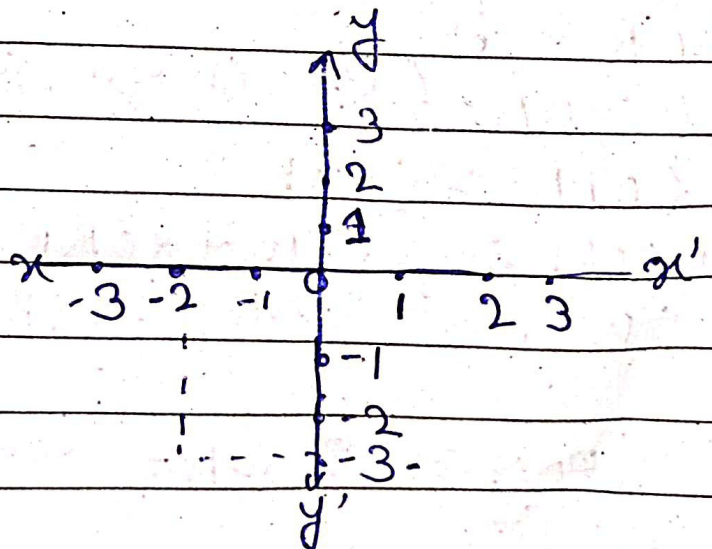 y
3
2
1
x -3 -2 -1 0 1 2 3 x'
-1
-2
-3
y'